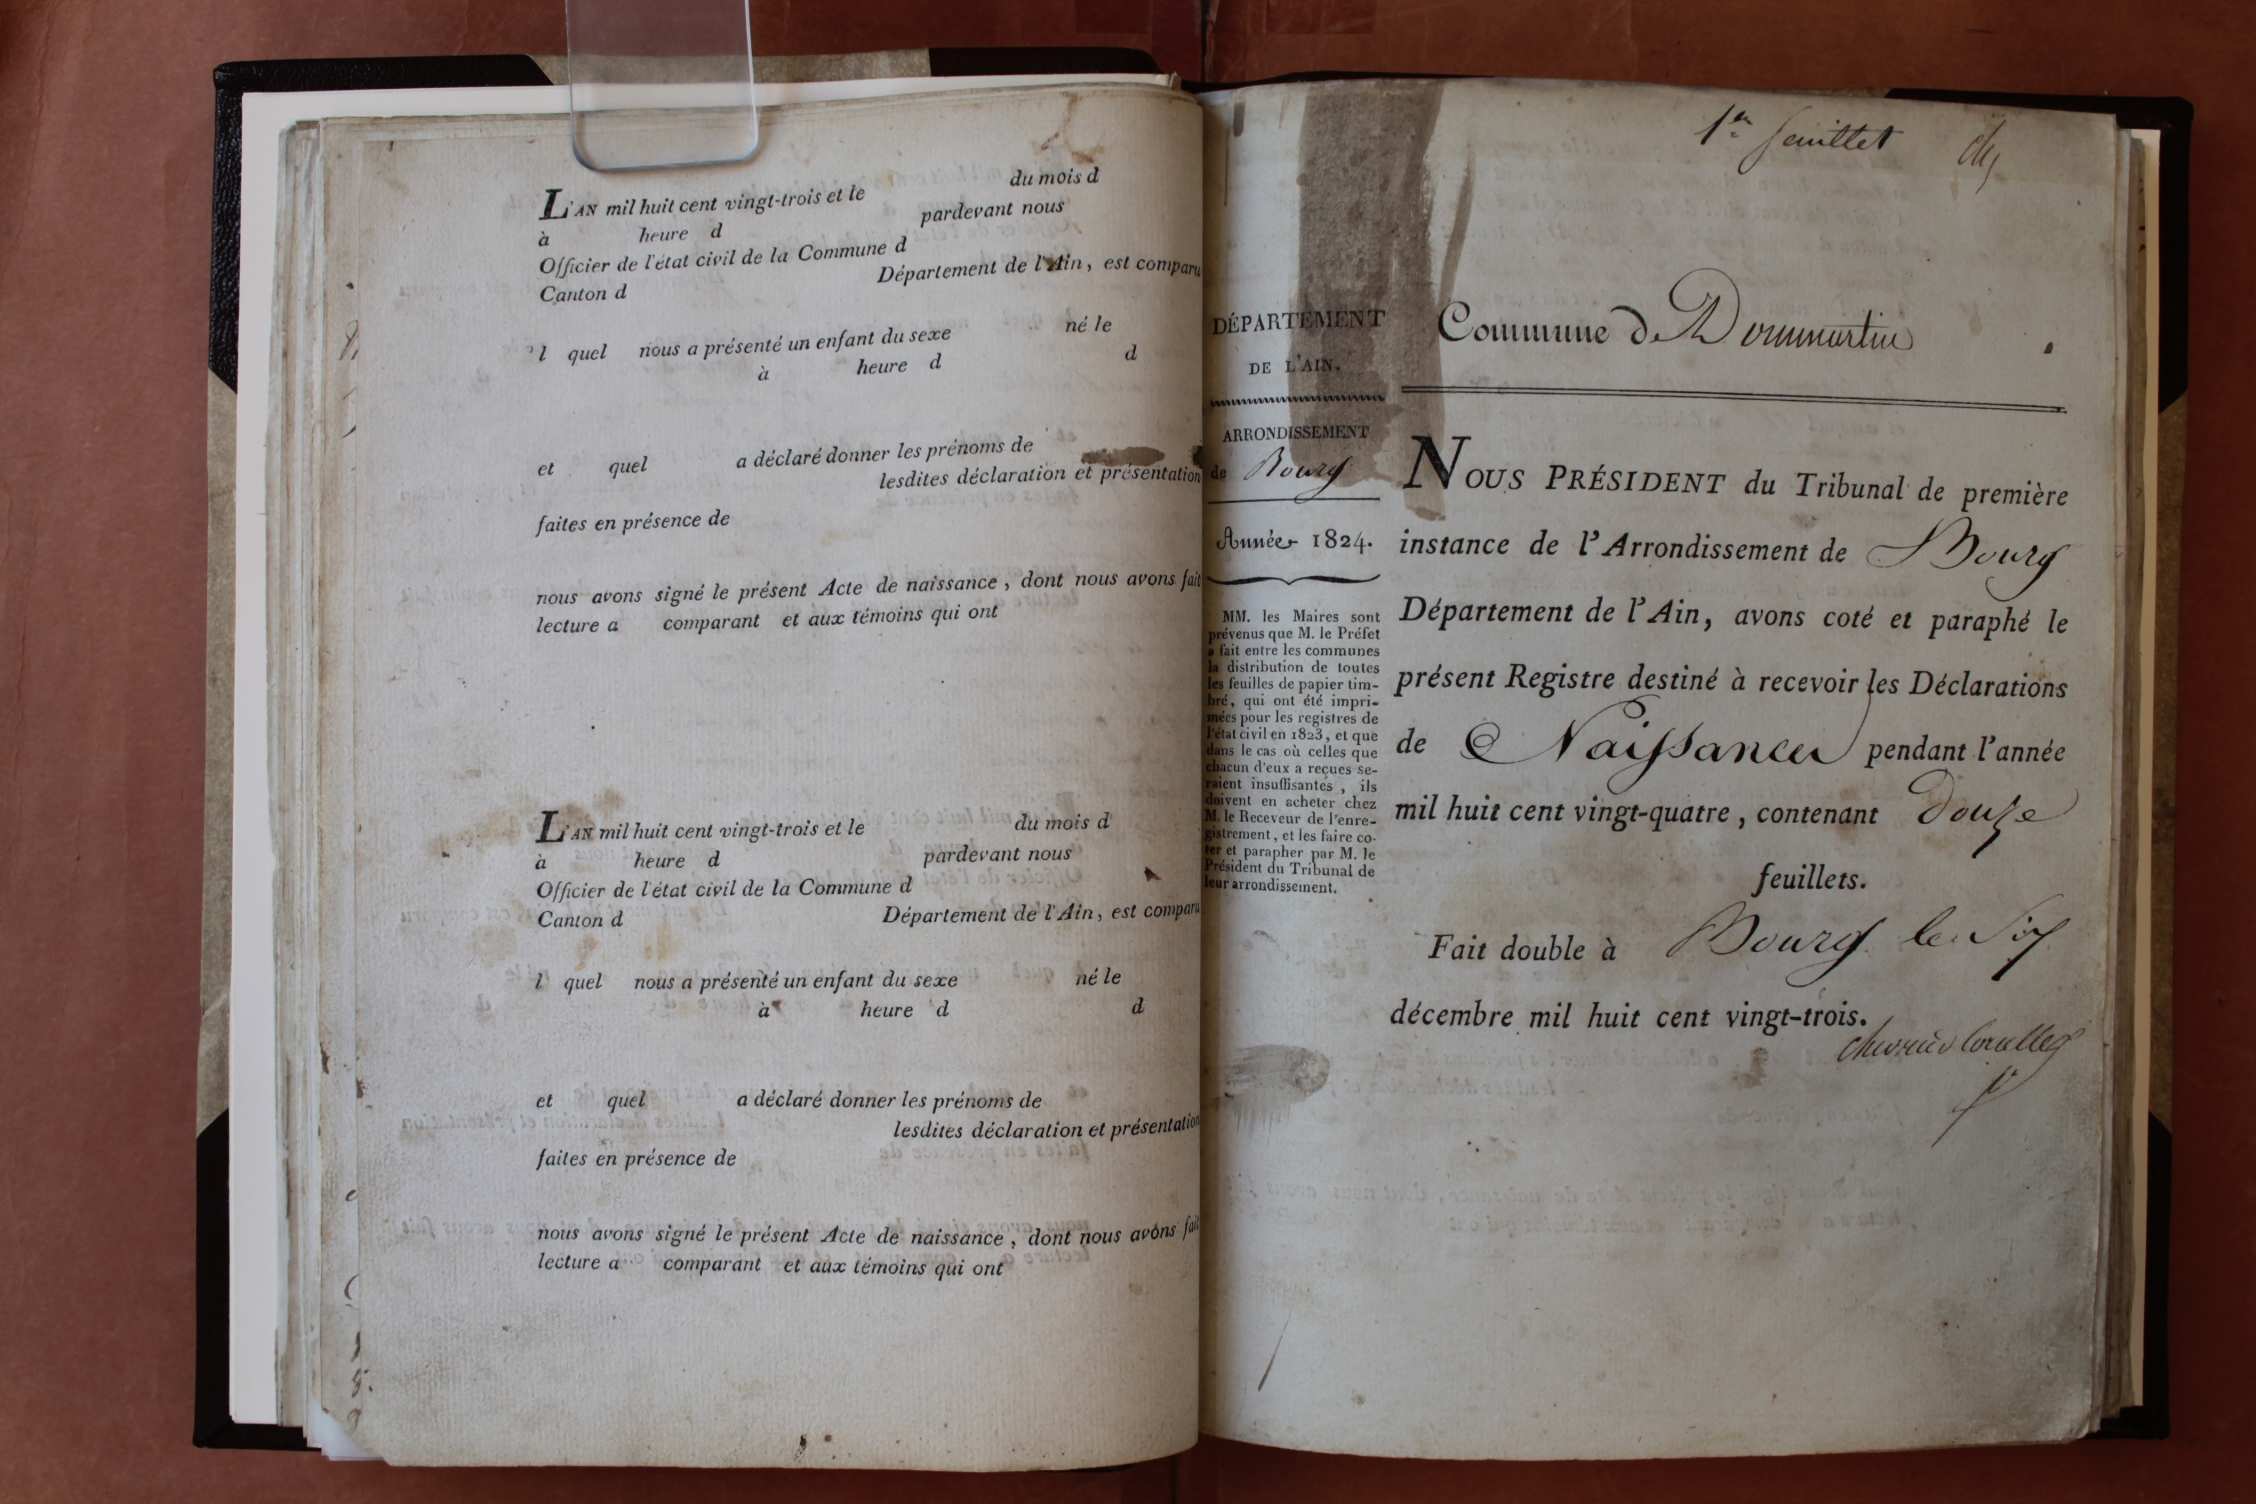 L'AN mil huit cent vingt-trois et le du mois d
à heure d pardevant nous
Officier de l'état civil de la Commune d
Canton d Département de l'Ain, est comparu
l quel nous a présenté un enfant du sexe né le
à heure d d
et quel a déclaré donner les prénoms de
lesdites déclaration et présentation
faites en présence de
nous avons signé le présent Acte de naissance, dont nous avons fait
lecture a comparant et aux témoins qui ont
L'AN mil huit cent vingt-trois et le du mois d
à heure d pardevant nous
Officier de l'état civil de la Commune d
Canton d Département de l'Ain, est comparu
l quel nous a présenté un enfant du sexe né le
à heure d d
et quel a déclaré donner les prénoms de
lesdites déclaration et présentation
faites en présence de
nous avons signé le présent Acte de naissance, dont nous avons fait
lecture a comparant et aux témoins qui ont
1er feuillet
DÉPARTEMENT
DE L'AIN.
ARRONDISSEMENT
de Bourg
Année 1824.
MM. les Maires sont
prévenus que M. le Préfet
a fait entre les communes
la distribution de toutes
les feuilles de papier tim-
bré, qui ont été impri-
mées pour les registres de
l'état civil en 1823, et que
dans le cas où celles que
chacun d'eux a reçues se-
raient insuffisantes, ils
doivent en acheter chez
M. le Receveur de l'enre-
gistrement, et les faire co-
ter et parapher par M. le
Président du Tribunal de
leur arrondissement.
Commune de Dommartin
NOUS PRÉSIDENT du Tribunal de première
instance de l'Arrondissement de Bourg
Département de l'Ain, avons coté et paraphé le
présent Registre destiné à recevoir les Déclarations
de Naissances pendant l'année
mil huit cent vingt-quatre, contenant douze
feuillets.
Fait double à Bourg le six
décembre mil huit cent vingt-trois.